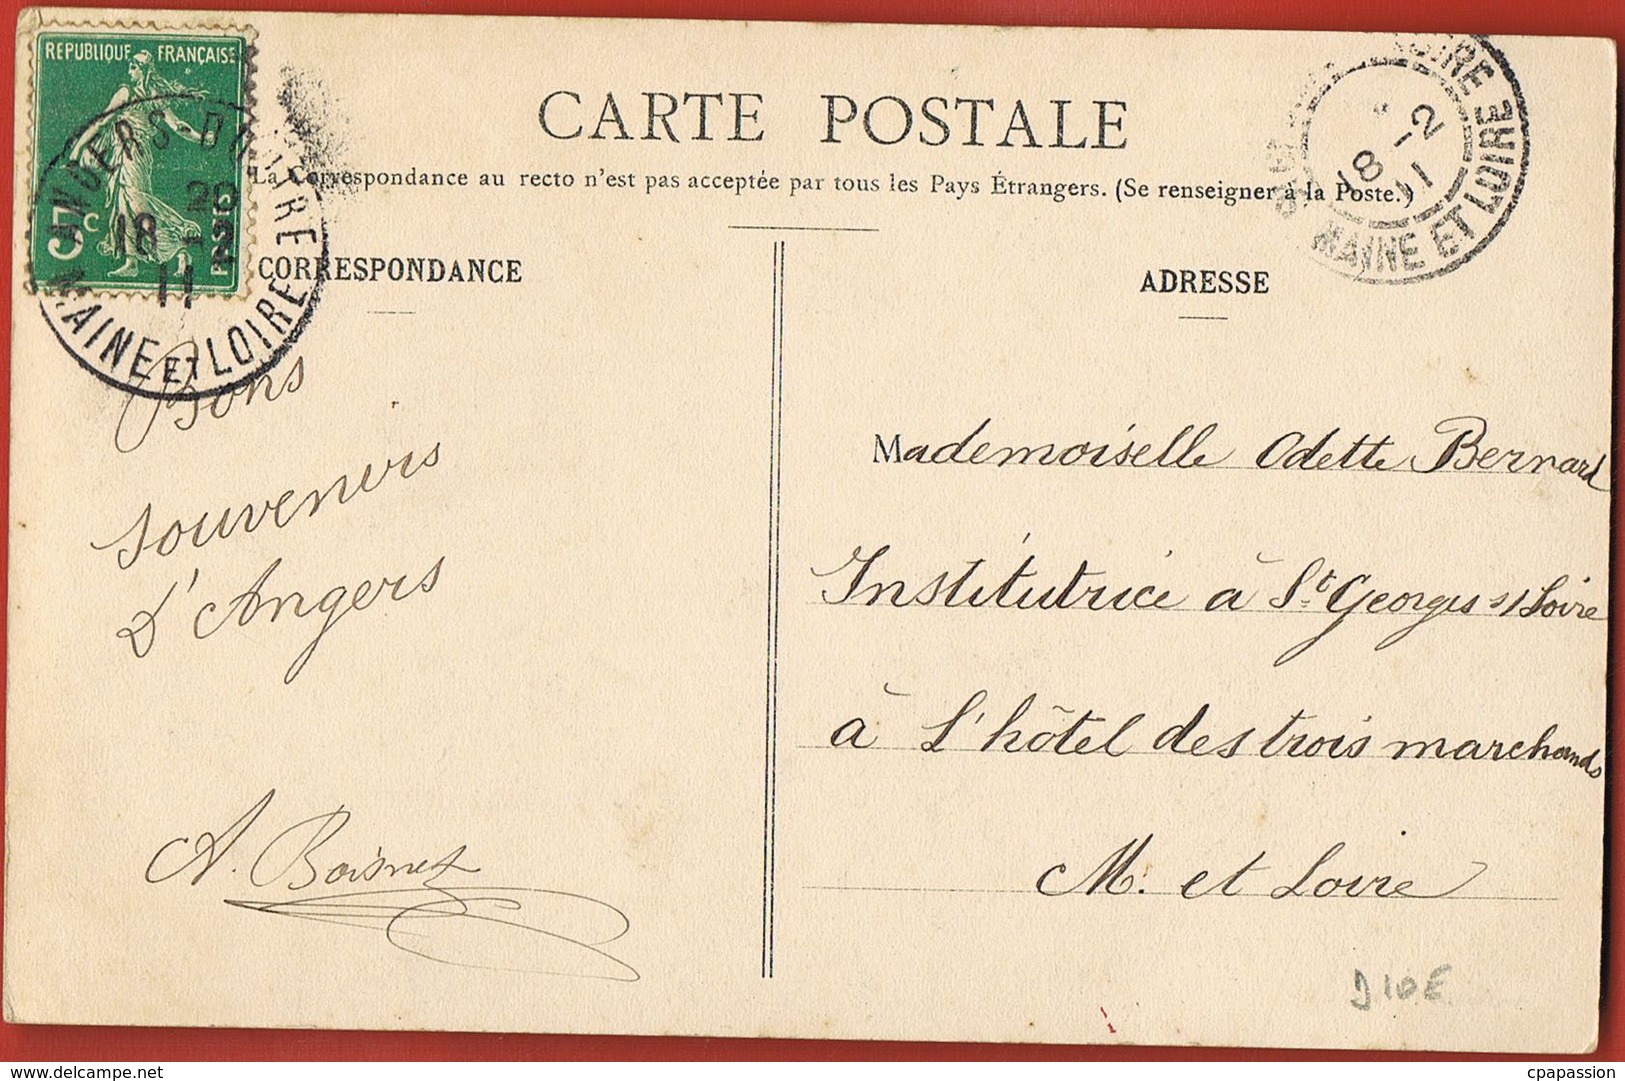 REPUBLIQUE FRANÇAISE
5c
18 -2
11
MAINE ET LOIRE
CARTE POSTALE
La Correspondance au recto n'est pas acceptée par tous les Pays Étrangers. (Se renseigner à la Poste.)
18 -2
11
MAINE ET LOIRE
CORRESPONDANCE
ADRESSE
Bons
souvenirs
d'Angers
A. Boisnet
Mademoiselle Odette Bernard
Institutrice à St Georges s/Loire
à l'hôtel des trois marchands
M. et Loire
D 10E
delcampe.net
cpapassion